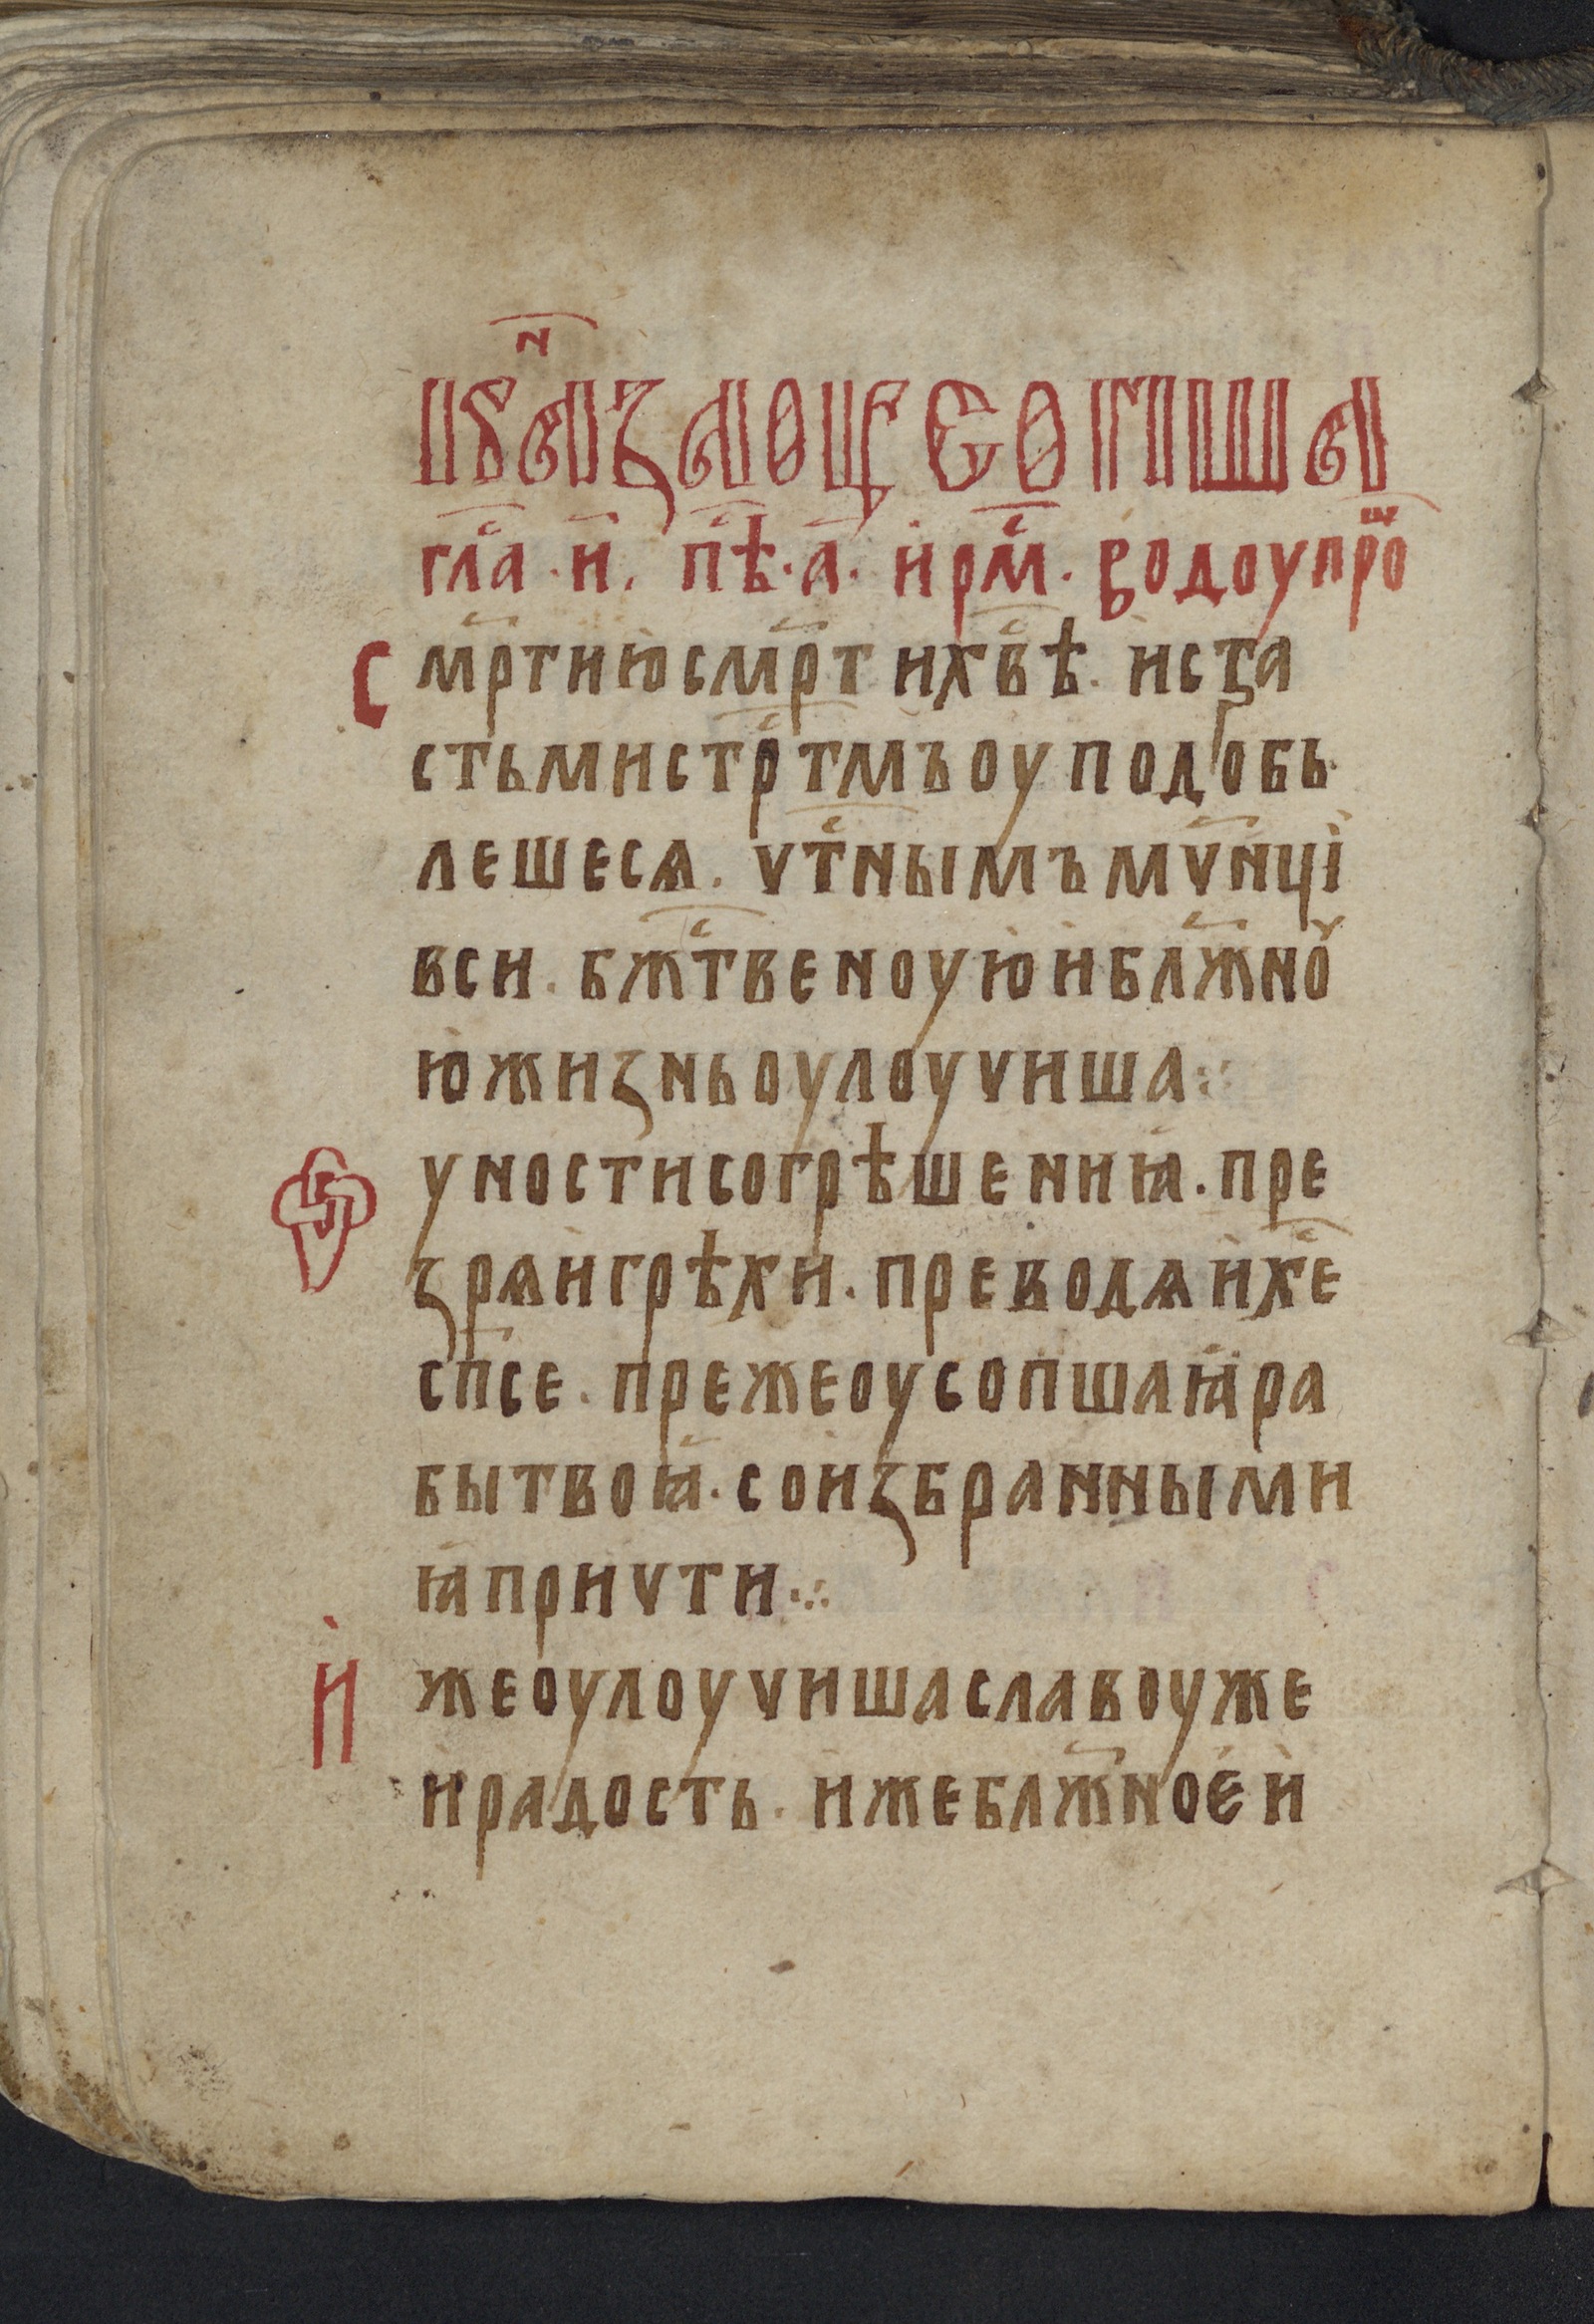 Каⷩ҇заоусопша
глⷭ҇а · и҃ . пⷭ҇ѣ · а҃ · и҆рмⷭ҇ . водоупроⷲ҇
С мр҃тию҆смр҃тихвⷭ҇ѣ . и҆ста
стьмистрⷭ҇тмъоуподобь
лешесѧ . чтⷭ҇нымъмч҃нці
вси . бжⷭ҇твеноую҆и҆блж҃ноу
ю҆жизньоулоучиша ჻
Ѹ уностисогрѣшениꙗ҆ . пре
зрѧи҆грѣхи . преводѧи҆хеⷭ҇
сп҃се . прежеоусопшаꙗ҆ра
бытвоꙗ҆ . сои҆збранными
ꙗ҆причти ჻
И҆ жеоулоучишаславоуже
и҆радость . и҆жеблж҃ное҆и҆